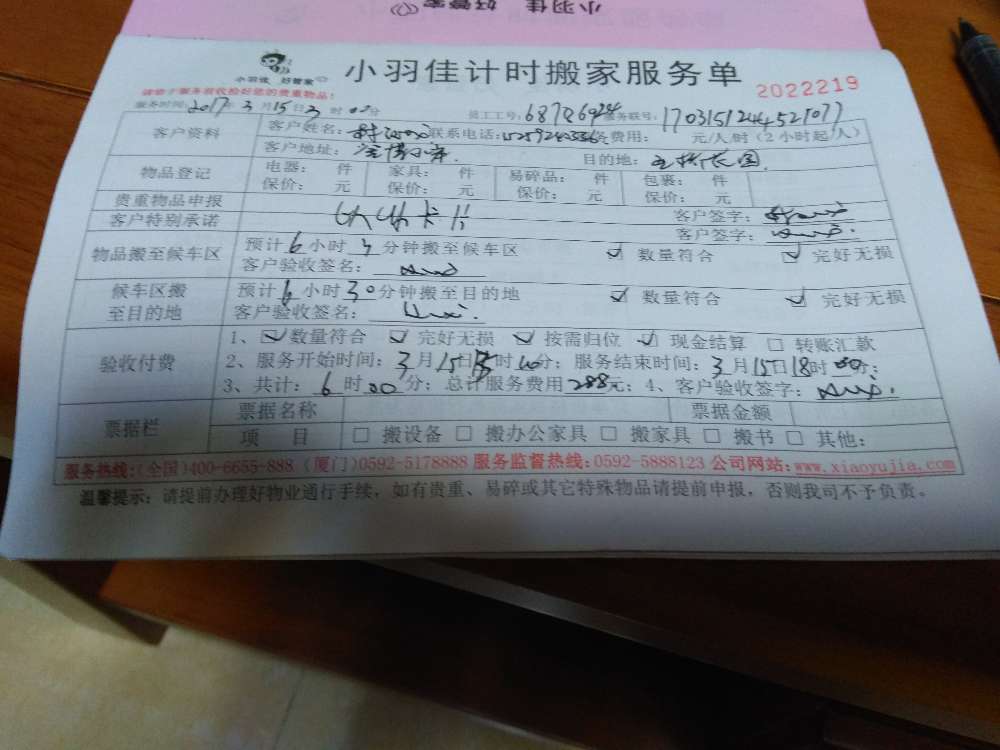 小羽佳 好管家
小羽佳 好管家
小羽佳计时搬家服务单
2022219
请给予服务前收捡好您的贵重物品!
服务时间: 2017年3月15日 时00分 员工工号: 服务联号:
客户资料 客户姓名: 联系电话: 服务费用: 元/人/时(2小时起/人)
客户地址: 目的地:
物品登记 电器: 件 家具: 件 易碎品: 件 包裹: 件
保价: 元 保价: 元 保价: 元 保价: 元
贵重物品申报 客户签字:
客户特别承诺 客户签字:
物品搬至候车区 预计6小时 分钟搬至候车区 ☑ 数量符合 ☑ 完好无损
客户验收签名:
候车区搬至目的地 预计6小时30分钟搬至目的地 ☑ 数量符合 ☑ 完好无损
客户验收签名:
验收付费 1、☑数量符合 ☑ 完好无损 ☑ 按需归位 ☑ 现金结算 □ 转账汇款
2、服务开始时间: 3月15日 时00分; 服务结束时间: 3月15日18时00分;
3、共计: 6时00分; 总计服务费用288元; 4、客户验收签字:
票据栏 票据名称 票据金额
项 目 □ 搬设备 □ 搬办公家具 □ 搬家具 □ 搬书 □ 其他:
服务热线:(全国)400-6655-888 (厦门)0592-5178888 服务监督热线:0592-5888123 公司网站:www.xiaoyujia.com
温馨提示: 请提前办理好物业通行手续,如有贵重、易碎或其它特殊物品请提前申报,否则我司不予负责。